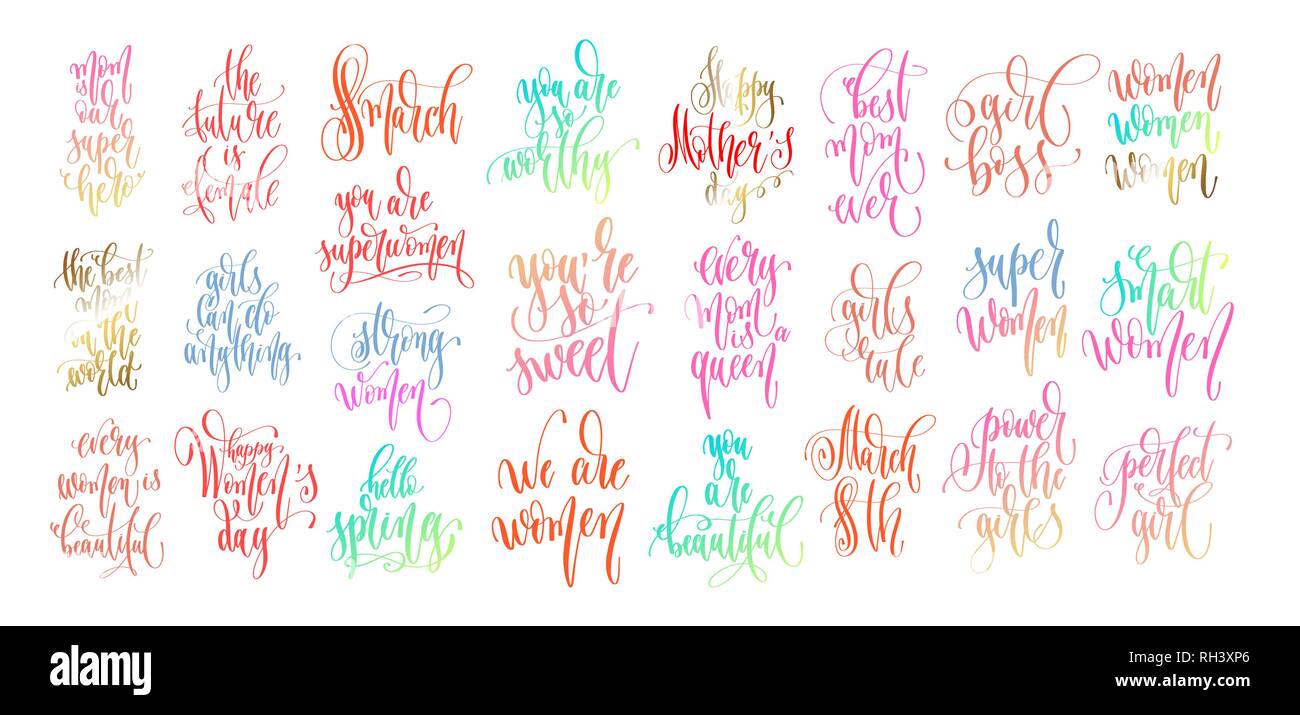 mom
is
our
super
hero
the
future
is
female
8 march
you are
so
worthy
Happy
Mother's
day
best
mom
ever
girl
boss
women
women
women
you are
superwomen
the best
mom
in the
world
girls
can do
anything
strong
women
you're
so
sweet
every
mom
is a
queen
girls
rule
super
women
smart
women
every
women is
beautiful
happy
Women's
day
hello
spring
we are
women
you
are
beautiful
March
8th
power
to the
girls
perfect
girl
alamy stock photo
RH3XP6
www.alamy.com